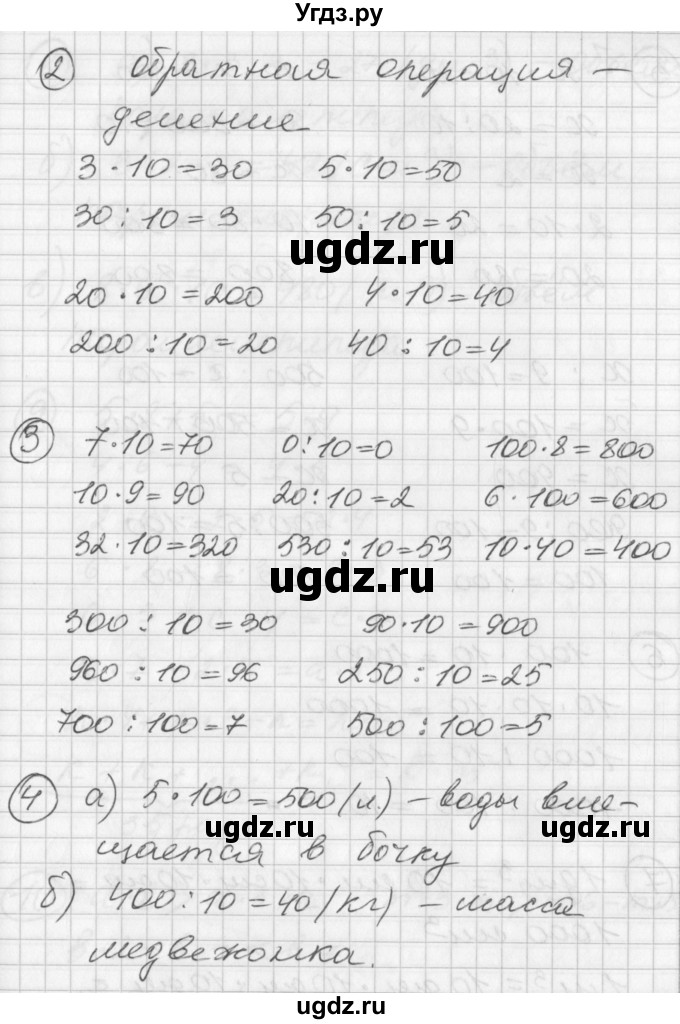 Угдз.ру
2 обратная операция —
деление
3 · 10 = 30 5 · 10 = 50
30 : 10 = 3 50 : 10 = 5
ugdz.ru
20 · 10 = 200 4 · 10 = 40
200 : 10 = 20 40 : 10 = 4
3 7 · 10 = 70 0 : 10 = 0 100 · 8 = 800
10 · 9 = 90 20 : 10 = 2 6 · 100 = 600
32 · 10 = 320 530 : 10 = 53 10 · 40 = 400
ugdz.ru
300 : 10 = 30 90 · 10 = 900
960 : 10 = 96 250 : 10 = 25
700 : 100 = 7 500 : 100 = 5
4 а) 5 · 100 = 500 (л) – воды вме-
ugdz.ru ugdz.ru
щается в бочку
б) 400 : 10 = 40 (кг) – масса
медвежонка.
ugdz.ru